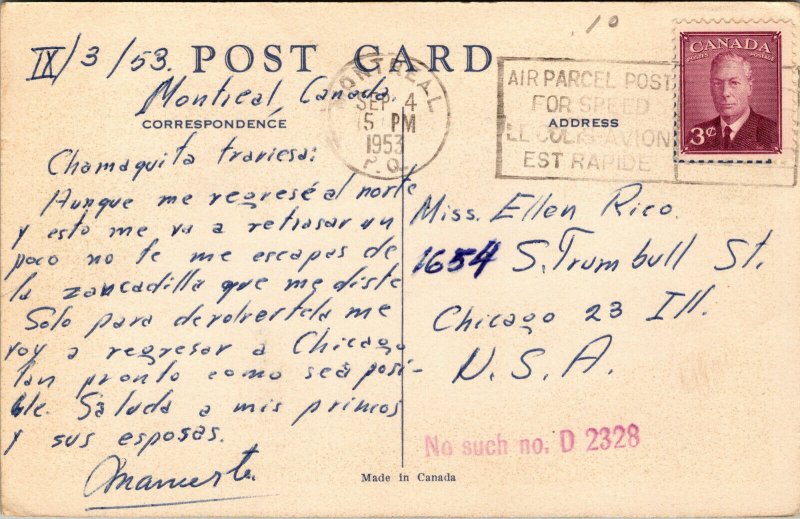 10
IX/3/53. POST CARD
Montreal, Canada.
CORRESPONDENCE
MONTREAL
SEP 4
5 PM
1953
P.Q.
AIR PARCEL POST
FOR SPEED
LE COLIS-AVION
EST RAPIDE
ADDRESS
CANADA
POSTES POSTAGE
3¢
Chamaquita traviesa:
Aunque me regresé al norte
y esto me va a retrasar un
poco no te me escapas de
la zancadilla que me diste
Solo para devolvertela me
voy a regresar a Chicago
tan pronto como sea posi-
ble. Saluda a mis primos
y sus esposas.
Miss. Ellen Rico.
1654 S. Trumbull St.
Chicago 23 Ill.
U.S.A.
No such no. D 2328
Made in Canada